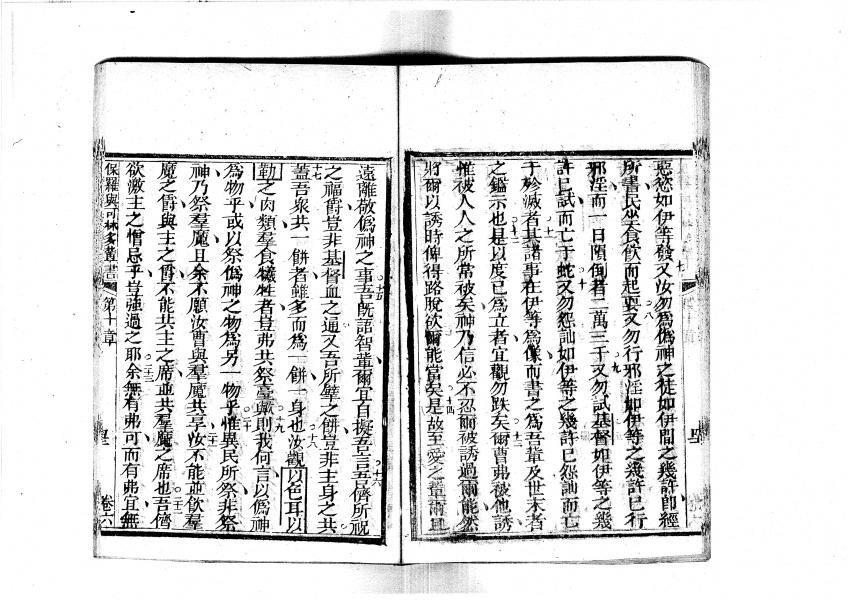 惡慾如伊等發又汝勿為偽神之徒如伊間之幾許即經
所書民坐食飲而起耍又勿行邪淫如伊等之幾許已行
邪淫而一日隕倒者二萬三千又勿試基督如伊等之幾
許已試而亡于蛇又勿怨訕如伊等之幾許已怨訕而亡
于殄滅者基諸事在伊等為像而書之為吾輩及世末者
之鑑示也是以度已為立者宜觀勿跌矣爾曹弗被他誘
惟被人人之所常被矣神乃信必不忍爾被誘過爾能然
將爾以誘時俾得路脫欲爾能當矣是故至愛之輩爾且
遠離敬偽神之事吾既語智輩爾宜自擬吾言吾儕所祝
之福爵豈非基督血之通又吾所擘之餅豈非主身之共
蓋吾眾共一餅者雖多而為一餅一身也汝觀以色耳以
勤之肉類羣食犧牲者豈弗共祭臺歟則我何言以偽神
為物乎或以祭偽神之物為另一物乎惟異民所祭非祭
神乃祭羣魔且余不願汝曹與羣魔共享汝不能並飲羣
魔之爵與主之爵不能共主之席並共羣魔之席也吾儕
欲激主之憎忌乎豈強過之耶余無有弗可而有弗宜無
保羅與可林多輩書 第十章 卷六